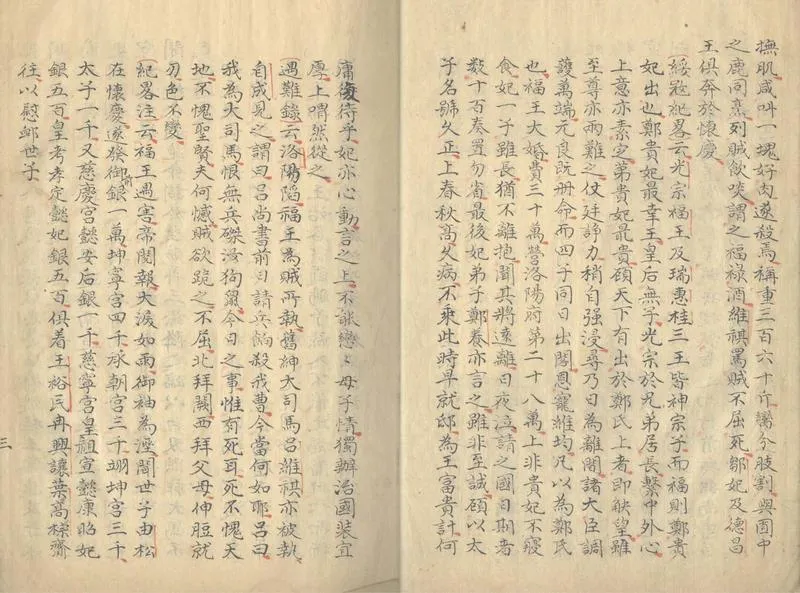 撫肌咸叫一塊好肉遂殺焉稱重三百六十斤臠分肢割與囿中
之鹿同烹列賊飲啖謂之福祿酒維祺罵賊不屈死鄒妃及德昌
王俱奔於懷慶
綏寇紀畧云光宗福王及瑞惠桂三王皆神宗子而福則鄭貴
妃出也鄭貴妃最幸王皇后無子光宗於兄弟居長繫中外心
上意亦素定第貴妃最貴顧天下有出於鄭氏上者即觖望雖
至尊亦兩難之仗廷諍力稍自强浸尋乃日為離間諸大臣調
護萬端元良既册命而四子同日出閣恩寵雖均凡以為鄭氏
也福王大婚費三十萬營洛陽府第二十八萬上非貴妃不寢
食妃一子雖長猶不離抱聞其將遠離日夜泣請之國日期者
數十百奏置勿省最後妃弟子鄭養亦言之雖非至誠顧以太
子名號久正上春秋高久病不乘此時早就邸為王富貴計何
庸復待乎妃亦心動言之上不能戀戀母子情獨辦治國裝宜
厚上喟然從之
遇難錄云洛陽陷福王為賊所執舊紳大司馬呂維祺亦被執
自成見之謂曰呂尚書前日請兵餉殺我曹今當何如耶呂曰
我為大司馬恨無兵磔汝狗鼠今日之事惟有死耳死不愧天
地不愧聖賢夫何憾賊欲跪之不屈北拜闕西拜父母伸脰就
刃色不變
紀畧注云福王遇害帝聞報大淚如雨御袖為溼聞世子由松
在懷慶遂發御前銀一萬坤寧宮四千承乾宮三千翊坤宮三千
太子一千又慈慶宮懿安后銀一千慈寧宮皇祖宣懿康昭妃
銀五百皇考孝定懿妃銀五百俱着王裕民冉興讓葉高標齎
往以慰邺世子
三